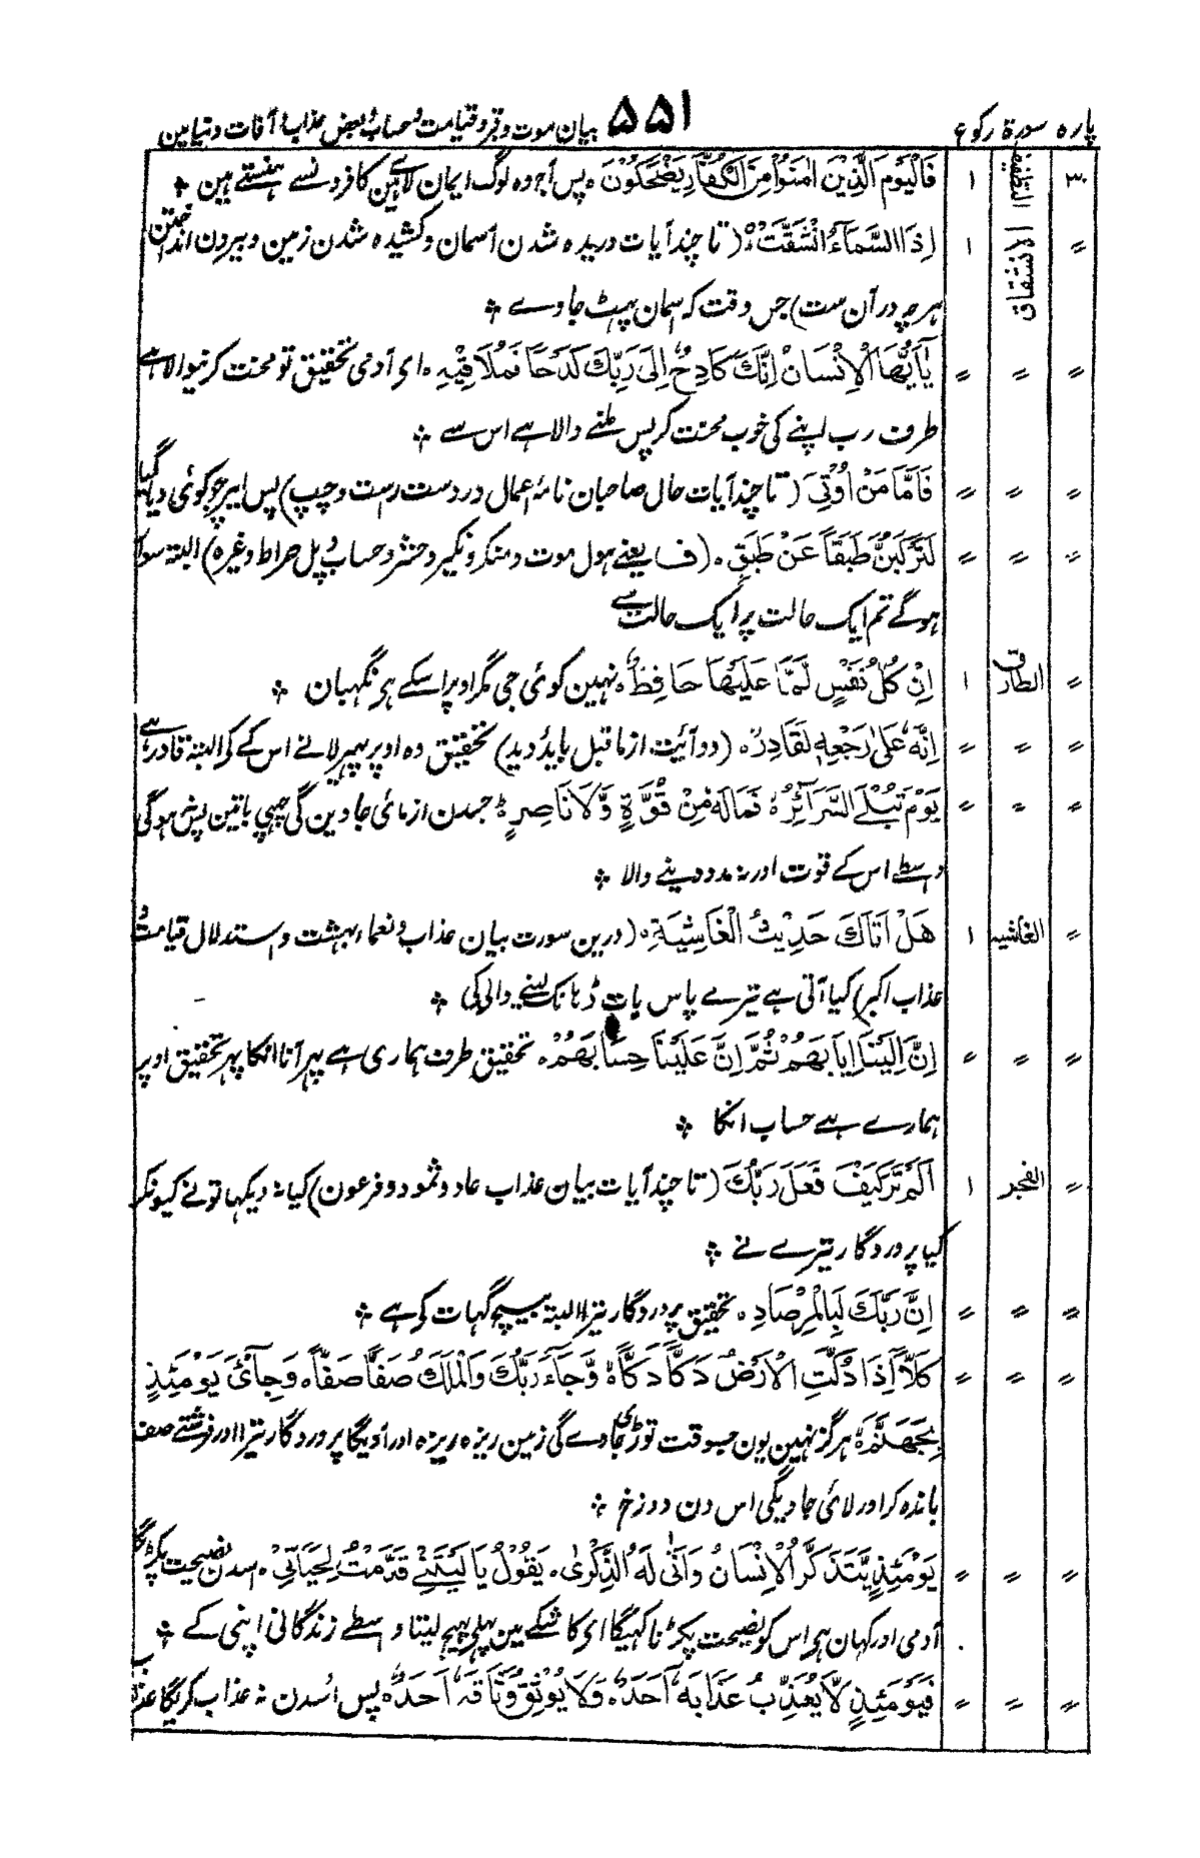 پارہ سورۃ رکوع ۵۵۱ بیان موت و قبر و قیامت و حساب و بعض عذاب و آفات دنیا مین
۳۰ ا فَالْيَوْمَ الَّذِيْنَ اٰمَنُوْا مِنَ الْكُفَّارِ يَضْحَكُوْنَ ہ پس آج وہ لوگ ایمان لائے ہین کافرونسے ہنستے ہین ٭
〃 الانشقاق ا اِذَا السَّمَآءُ انْشَقَّتْ ہ (تا چند آیات دریدہ شدن آسمان و کشیدہ شدن زمین و بیرون انداختن
ہرچہ در آن ست) جس وقت کہ آسمان پھٹ جاوے ٭
〃 〃 〃 يٰٓاَيُّهَا الْاِنْسَانُ اِنَّكَ كَادِحٌ اِلٰى رَبِّكَ كَدْحًا فَمُلَاقِيْهِ ہ ای آدمی تحقیق تو محنت کرنیوالا ہے
طرف رب اپنے کی خوب محنت کر پس ملنے والا ہے اس سے ٭
〃 〃 〃 فَاَمَّا مَنْ اُوْتِيَ (تا چند آیات حال صاحبان نامۂ اعمال در دست راست و چپ) پس ایپر جو کوئی دیا گیا
〃 〃 〃 لَتَرْكَبُنَّ طَبَقًا عَنْ طَبَقٍ ہ (ف یعنے ہول موت و منکر و نکیر و حشر و حساب و پل صراط وغیرہ) البتہ سوار
ہوگے تم ایک حالت پر ایک حالت سے
〃 الطارق ا اِنْ كُلُّ نَفْسٍ لَّمَّا عَلَيْهَا حَافِظٌ ہ نہین کوئی جی مگر اوپر اسکے ہی نگہبان ٭
〃 〃 〃 اِنَّهٗ عَلٰى رَجْعِهٖ لَقَادِرٌ ہ (دو آیت از ما قبل باید دید) تحقیق وہ اوپر پھیر لانے اس کے کو البتہ قادر ہے
〃 〃 〃 يَوْمَ تُبْلَى السَّرَآئِرُ ہ فَمَالَهٗ مِنْ قُوَّةٍ وَّلَا نَاصِرٍ ہ جسدن ازمائی جاوین گی چھپی باتین پس ہوگی
واسطے اس کے قوت اور نہ مدد دینے والا ٭
〃 الغاشیہ ا هَلْ اَتَاكَ حَدِيْثُ الْغَاشِيَةِ ہ (درین سورت بیان عذاب و نعماء بہشت و استدلال قیامت و
عذاب اکبر) کیا آئی ہے تیرے پاس بات ڈہانک لینے والی کی ٭
〃 〃 〃 اِنَّ اِلَيْنَا اِيَابَهُمْ ثُمَّ اِنَّ عَلَيْنَا حِسَابَهُمْ ہ تحقیق طرف ہماری ہے پھر آنا انکا پھر تحقیق اوپر
ہمارے ہے حساب انکا ٭
〃 الفجر ا اَلَمْ تَرَ كَيْفَ فَعَلَ رَبُّكَ (تا چند آیات بیان عذاب عاد و ثمود و فرعون) کیا نہ دیکھا تو نے کیونکر
کیا پروردگار تیرے نے ٭
〃 〃 〃 اِنَّ رَبَّكَ لَبِالْمِرْصَادِ ہ تحقیق پروردگار تیرا البتہ بیچ گہات کے ہے ٭
〃 〃 〃 كَلَّآ اِذَا دُكَّتِ الْاَرْضُ دَكًّا دَكًّا ہ وَّجَآءَ رَبُّكَ وَالْمَلَكُ صَفًّا صَفًّا ہ وَجِآئَ يَوْمَئِذٍ
بِجَهَنَّمَ ہ ہرگز نہین یون جسوقت توڑی جاوے گی زمین ریزہ ریزہ اور آویگا پروردگار تیرا اور فرشتے صف
باندہ کر اور لائی جاویگی اس دن دوزخ ٭
〃 〃 〃 يَوْمَئِذٍ يَّتَذَكَّرُ الْاِنْسَانُ وَاَنّٰى لَهُ الذِّكْرٰى ہ يَقُوْلُ يَا لَيْتَنِيْ قَدَّمْتُ لِحَيَاتِيْ ہ اسدن نصیحت پکڑیگا
آدمی اور کہان ہی اس کو نصیحت پکڑنا کہیگا ای کاشکے مین پہلے بھیج لیتا واسطے زندگانی اپنی کے ٭
〃 〃 〃 فَيَوْمَئِذٍ لَّا يُعَذِّبُ عَذَابَهٗ اَحَدٌ ہ وَّلَا يُوْثِقُ وَثَاقَهٗ اَحَدٌ ہ پس اُسدن نہ عذاب کریگا عذاب